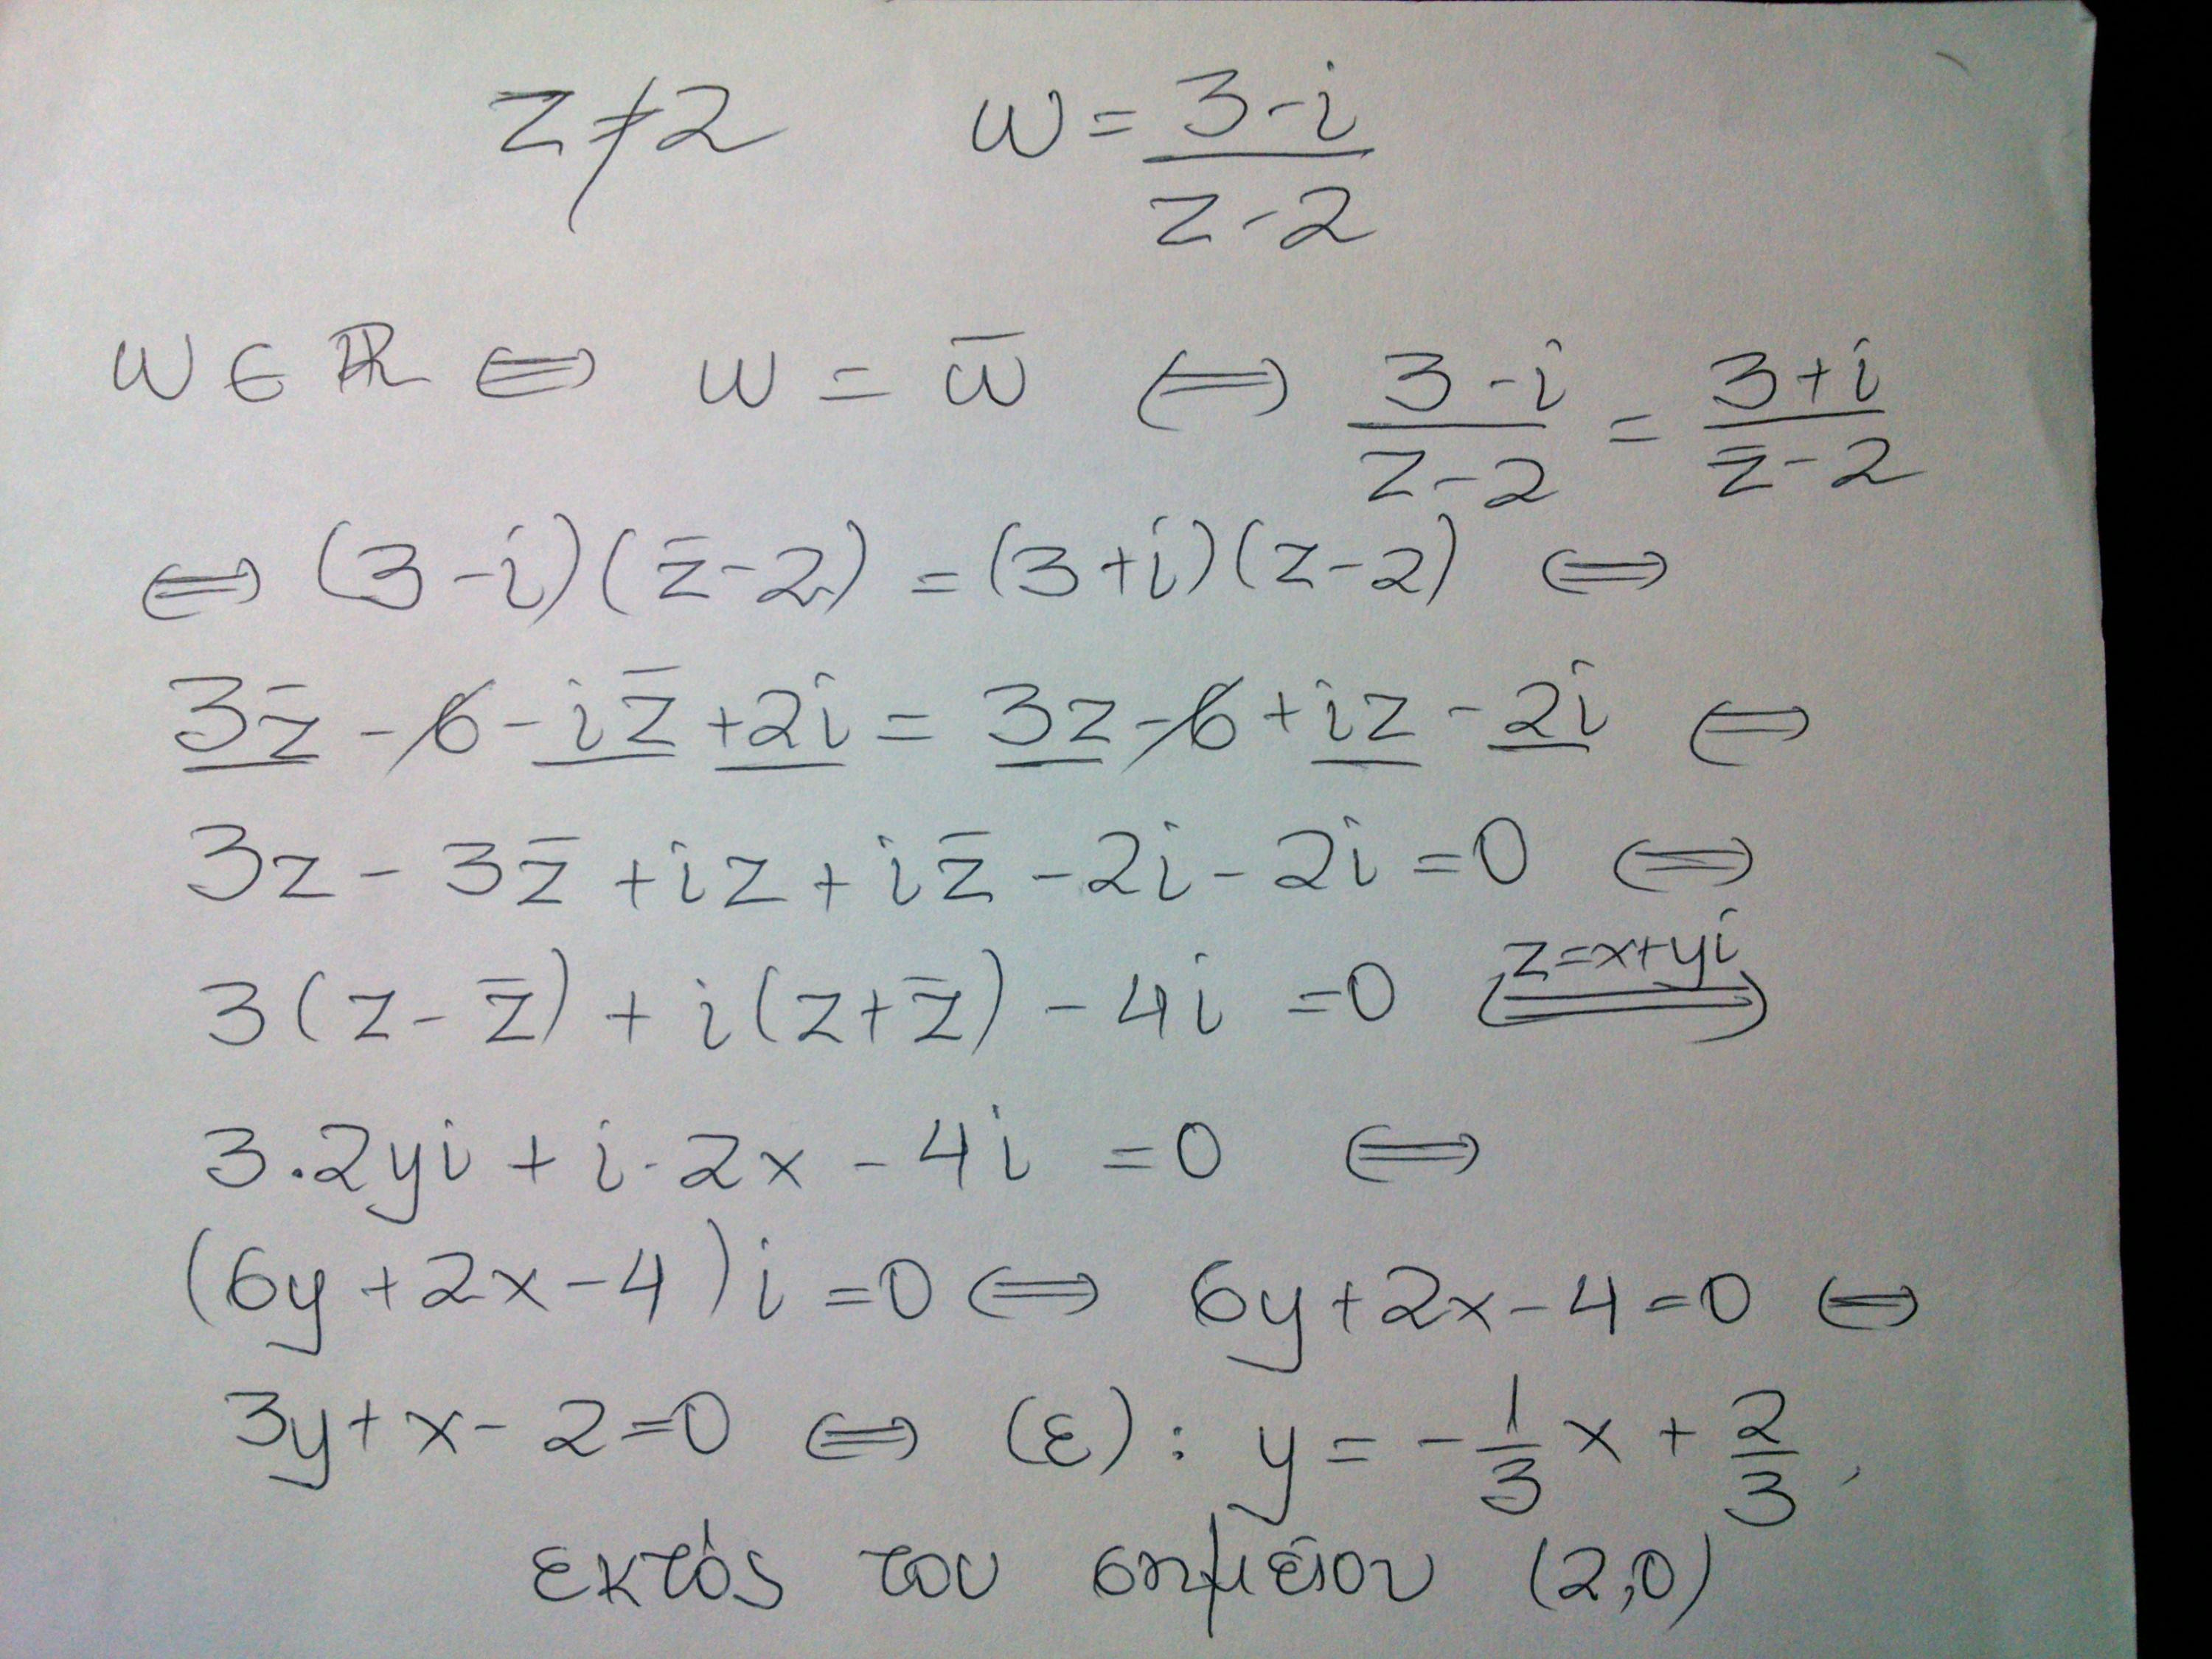 z ≠ 2 w = \frac{3-i}{z-2}
w ∈ ℝ ⟺ w = \bar{w} ⟺ \frac{3-i}{z-2} = \frac{3+i}{\bar{z}-2}
⟺ (3-i)(\bar{z}-2) = (3+i)(z-2) ⟺
3\bar{z} - 6 - i\bar{z} + 2i = 3z - 6 + iz - 2i ⟺
3z - 3\bar{z} + iz + i\bar{z} - 2i - 2i = 0 ⟺
3(z - \bar{z}) + i(z + \bar{z}) - 4i = 0 \overset{z=x+yi}{⟺}
3·2yi + i·2x - 4i = 0 ⟺
(6y + 2x - 4)i = 0 ⟺ 6y + 2x - 4 = 0 ⟺
3y + x - 2 = 0 ⟺ (ε): y = -\frac{1}{3}x + \frac{2}{3},
εκτός του σημείου (2,0)